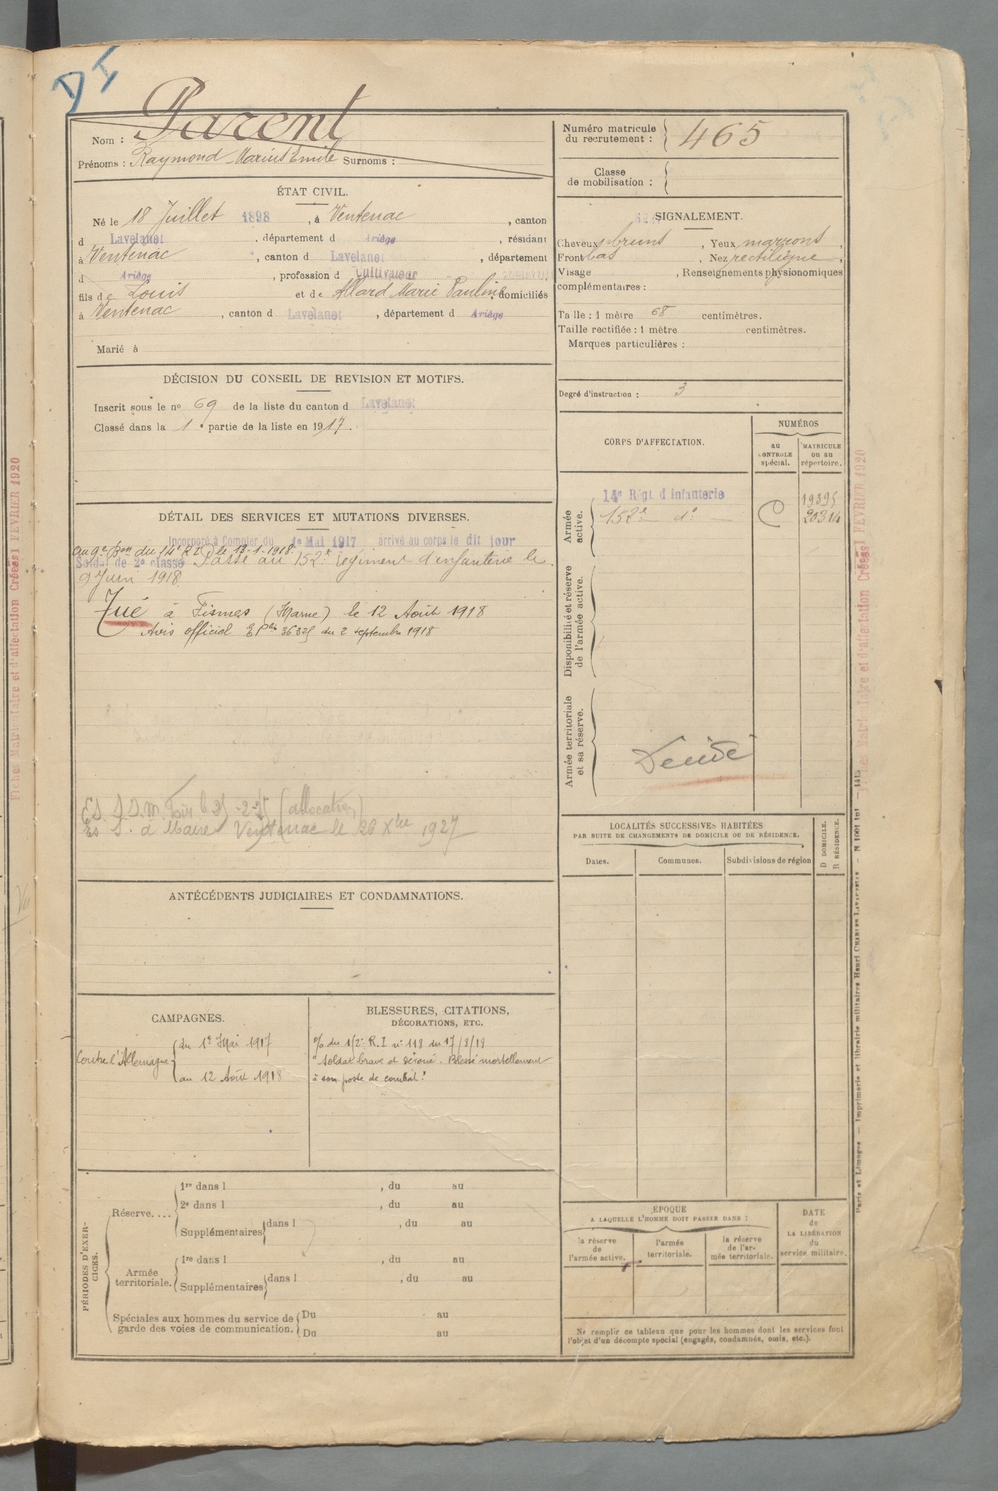 D I
Parent
Nom :
Prénoms : Raymond Marius Emile Surnoms :
Numéro matricule du recrutement : 465
Classe de mobilisation :
ÉTAT CIVIL.
Né le 18 Juillet 1898, à Ventenac, canton
d Lavelanet, département d Ariège, résidant
à Ventenac, canton d Lavelanet, département
d Ariège, profession d Cultivateur
fils de Louis et de Allard Marie Pauline, domiciliés
à Ventenac, canton d Lavelanet, département d Ariège
Marié à
SIGNALEMENT.
Cheveux bruns, Yeux marrons,
Front bas, Nez rectiligne,
Visage , Renseignements physionomiques
complémentaires :
Taille : 1 mètre 68 centimètres.
Taille rectifiée : 1 mètre centimètres.
Marques particulières :
Degré d'instruction : 3
DÉCISION DU CONSEIL DE REVISION ET MOTIFS.
Inscrit sous le n° 69 de la liste du canton d Lavelanet
Classé dans la 1e partie de la liste en 1917.
CORPS D'AFFECTATION.
NUMÉROS
AU CONTROLE spécial.
MATRICULE ou au répertoire.
Armée active.
14e Régt d'Infanterie 19395
152e d° 20314
Disponibilité et réserve de l'armée active.
Armée territoriale et sa réserve.
Décédé
DÉTAIL DES SERVICES ET MUTATIONS DIVERSES.
Incorporé à compter du 1e Mai 1917 arrivé au corps le dit jour
au 9e Bon du 14e R.I. le 13-1-1918
Soldat de 2e classe Passé au 152e régiment d'infanterie le
9 Juin 1918.
Tué à Fismes (Marne) le 12 Août 1918
Avis officiel du 2 septembre 1918
(allocation)
Es S. à Maire Ventenac le 26 Xbre 1927
LOCALITÉS SUCCESSIVES HABITÉES
PAR SUITE DE CHANGEMENTS DE DOMICILE OU DE RÉSIDENCE.
Dates.
Communes.
Subdivisions de région
D DOMICILE.
R RÉSIDENCE.
ANTÉCÉDENTS JUDICIAIRES ET CONDAMNATIONS.
CAMPAGNES.
Contre l'Allemagne
du 1er Mai 1917
au 12 Août 1918
BLESSURES, CITATIONS,
DÉCORATIONS, ETC.
du 152e R.I n° 118 du 17/8/18
"Soldat brave et dévoué. Blessé mortellement
à son poste de combat."
PÉRIODES D'EXERCICES.
Réserve....
1re dans l , du au
2e dans l , du au
Supplémentaires dans l , du au
Armée territoriale.
1re dans l , du au
Supplémentaires dans l , du au
Spéciales aux hommes du service de
garde des voies de communication.
Du au
Du au
ÉPOQUE
A LAQUELLE L'HOMME DOIT PASSER DANS :
la réserve de l'armée active.
l'armée territoriale.
la réserve de l'armée territoriale.
DATE de LA LIBÉRATION du service militaire.
Ne remplir ce tableau que pour les hommes dont les services font
l'objet d'un décompte spécial (engagés, condamnés, omis, etc.).
Fiches Matriculaire et d'affectation Créées 1 FEVRIER 1920
Fiches Matriculaire et d'affectation Créées 1 FEVRIER 1920
Paris et Limoges — Imprimerie et librairie militaires Henri CHARLES-LAVAUZELLE